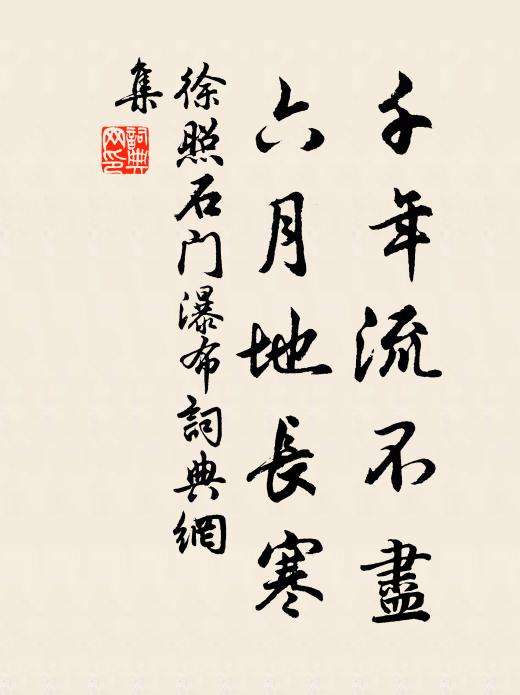 千年流不盡
六月地長寒
徐照石门瀑布詞典網
集
詞典網印